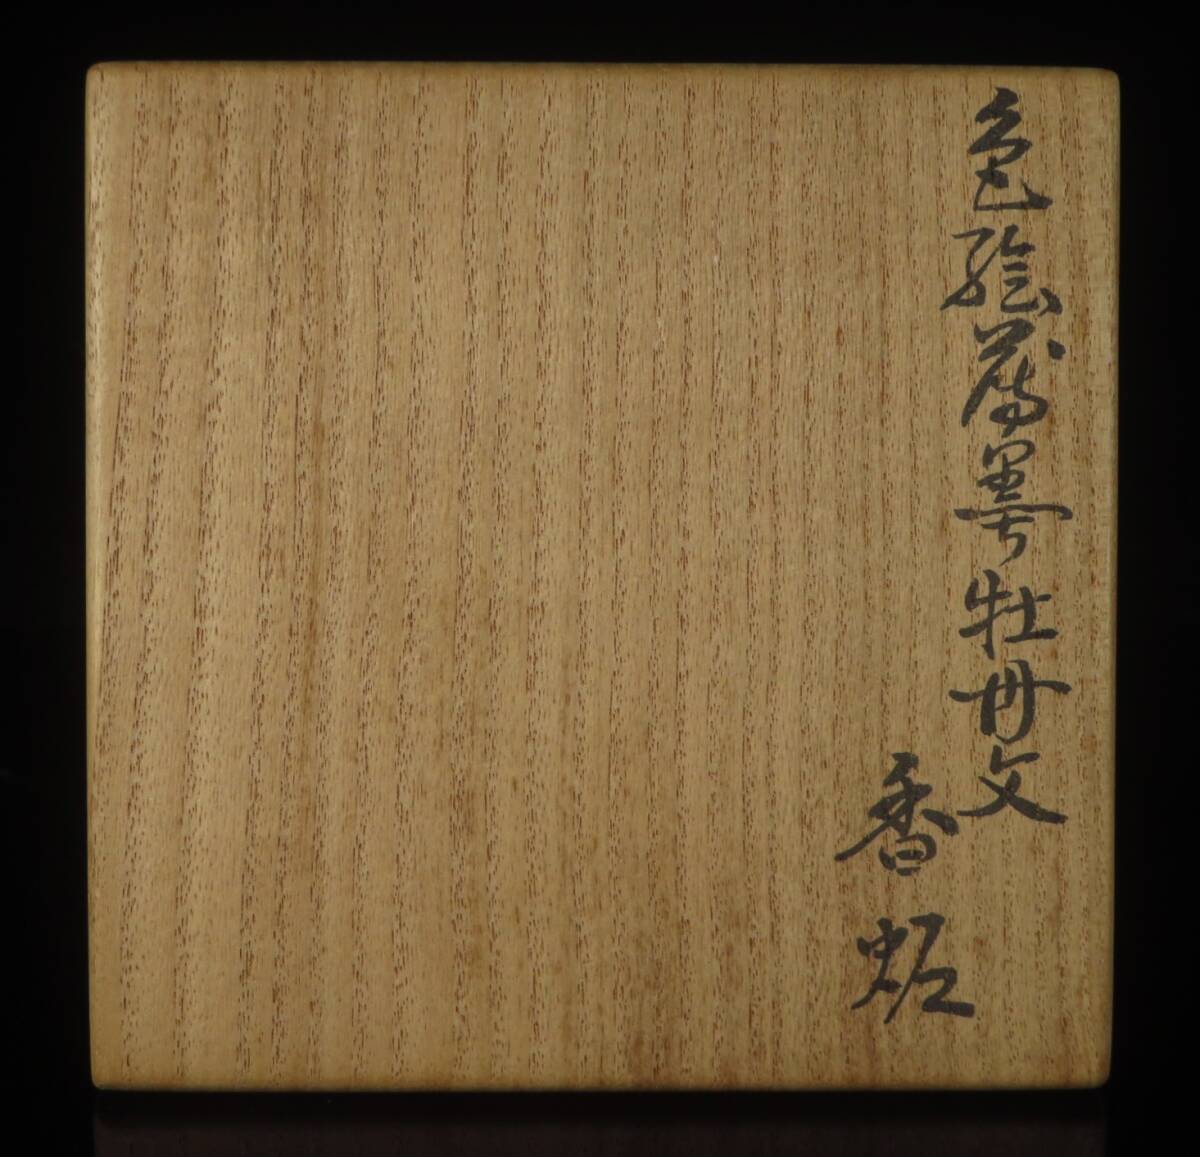 色絵薄墨牡丹文
香炉